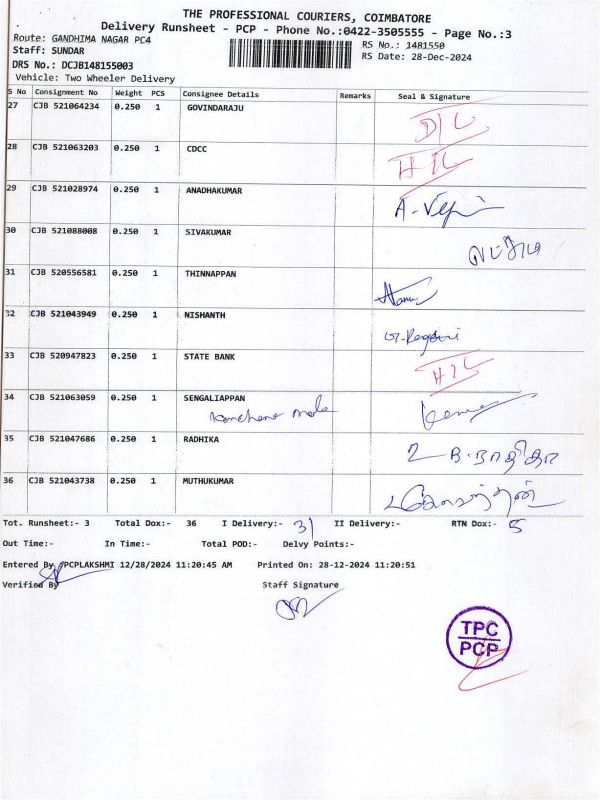 THE PROFESSIONAL COURIERS, COIMBATORE
Delivery Runsheet - PCP - Phone No.:0422-3505555 - Page No.:3
Route: GANDHIMA NAGAR PC4 RS No.: 1481550
Staff: SUNDAR RS Date: 28-Dec-2024
DRS No.: DCJB148155003
Vehicle: Two Wheeler Delivery
S No Consignment No Weight PCS Consignee Details Remarks Seal & Signature
27 CJB 521064234 0.250 1 GOVINDARAJU D/L
28 CJB 521063203 0.250 1 CDCC H/L
29 CJB 521028974 0.250 1 ANADHAKUMAR
30 CJB 521088008 0.250 1 SIVAKUMAR
31 CJB 520556581 0.250 1 THINNAPPAN
32 CJB 521043949 0.250 1 NISHANTH
33 CJB 520947823 0.250 1 STATE BANK H/L
34 CJB 521063059 0.250 1 SENGALIAPPAN
35 CJB 521047686 0.250 1 RADHIKA B. ராதிகா
36 CJB 521043738 0.250 1 MUTHUKUMAR
Tot. Runsheet:- 3 Total Dox:- 36 I Delivery:- 31 II Delivery:- RTN Dox:- 5
Out Time:- In Time:- Total POD:- Delvy Points:-
Entered By PCPLAKSHMI 12/28/2024 11:20:45 AM Printed On: 28-12-2024 11:20:51
Verified By Staff Signature
TPC
PCP